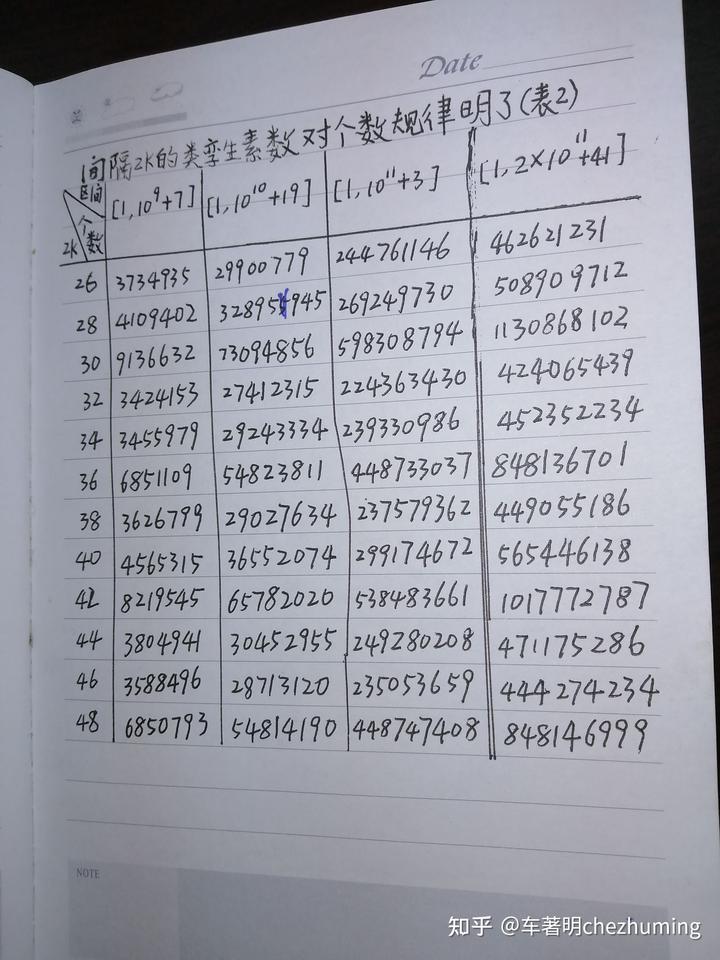 Date
间隔2K的类孪生素数对个数规律明了(表2)
区间 个数 2K [1,10⁹+7] [1,10¹⁰+19] [1,10¹¹+3] [1,2×10¹¹+41]
26 3734935 29900779 244761146 462621231
28 4109402 32895945 269249730 508909712
30 9136632 73094856 598308794 1130868102
32 3424153 27412315 224363430 424065439
34 3455979 29243334 239330986 452352234
36 6851109 54823811 448733037 848136701
38 3626799 29027634 237579362 449055186
40 4565315 36552074 299174672 565446138
42 8219545 65782020 538483661 1017772787
44 3804941 30452955 249280208 471175286
46 3588496 28713120 235053659 444274234
48 6850793 54814190 448747408 848146999
NOTE
知乎 @车著明chezhuming